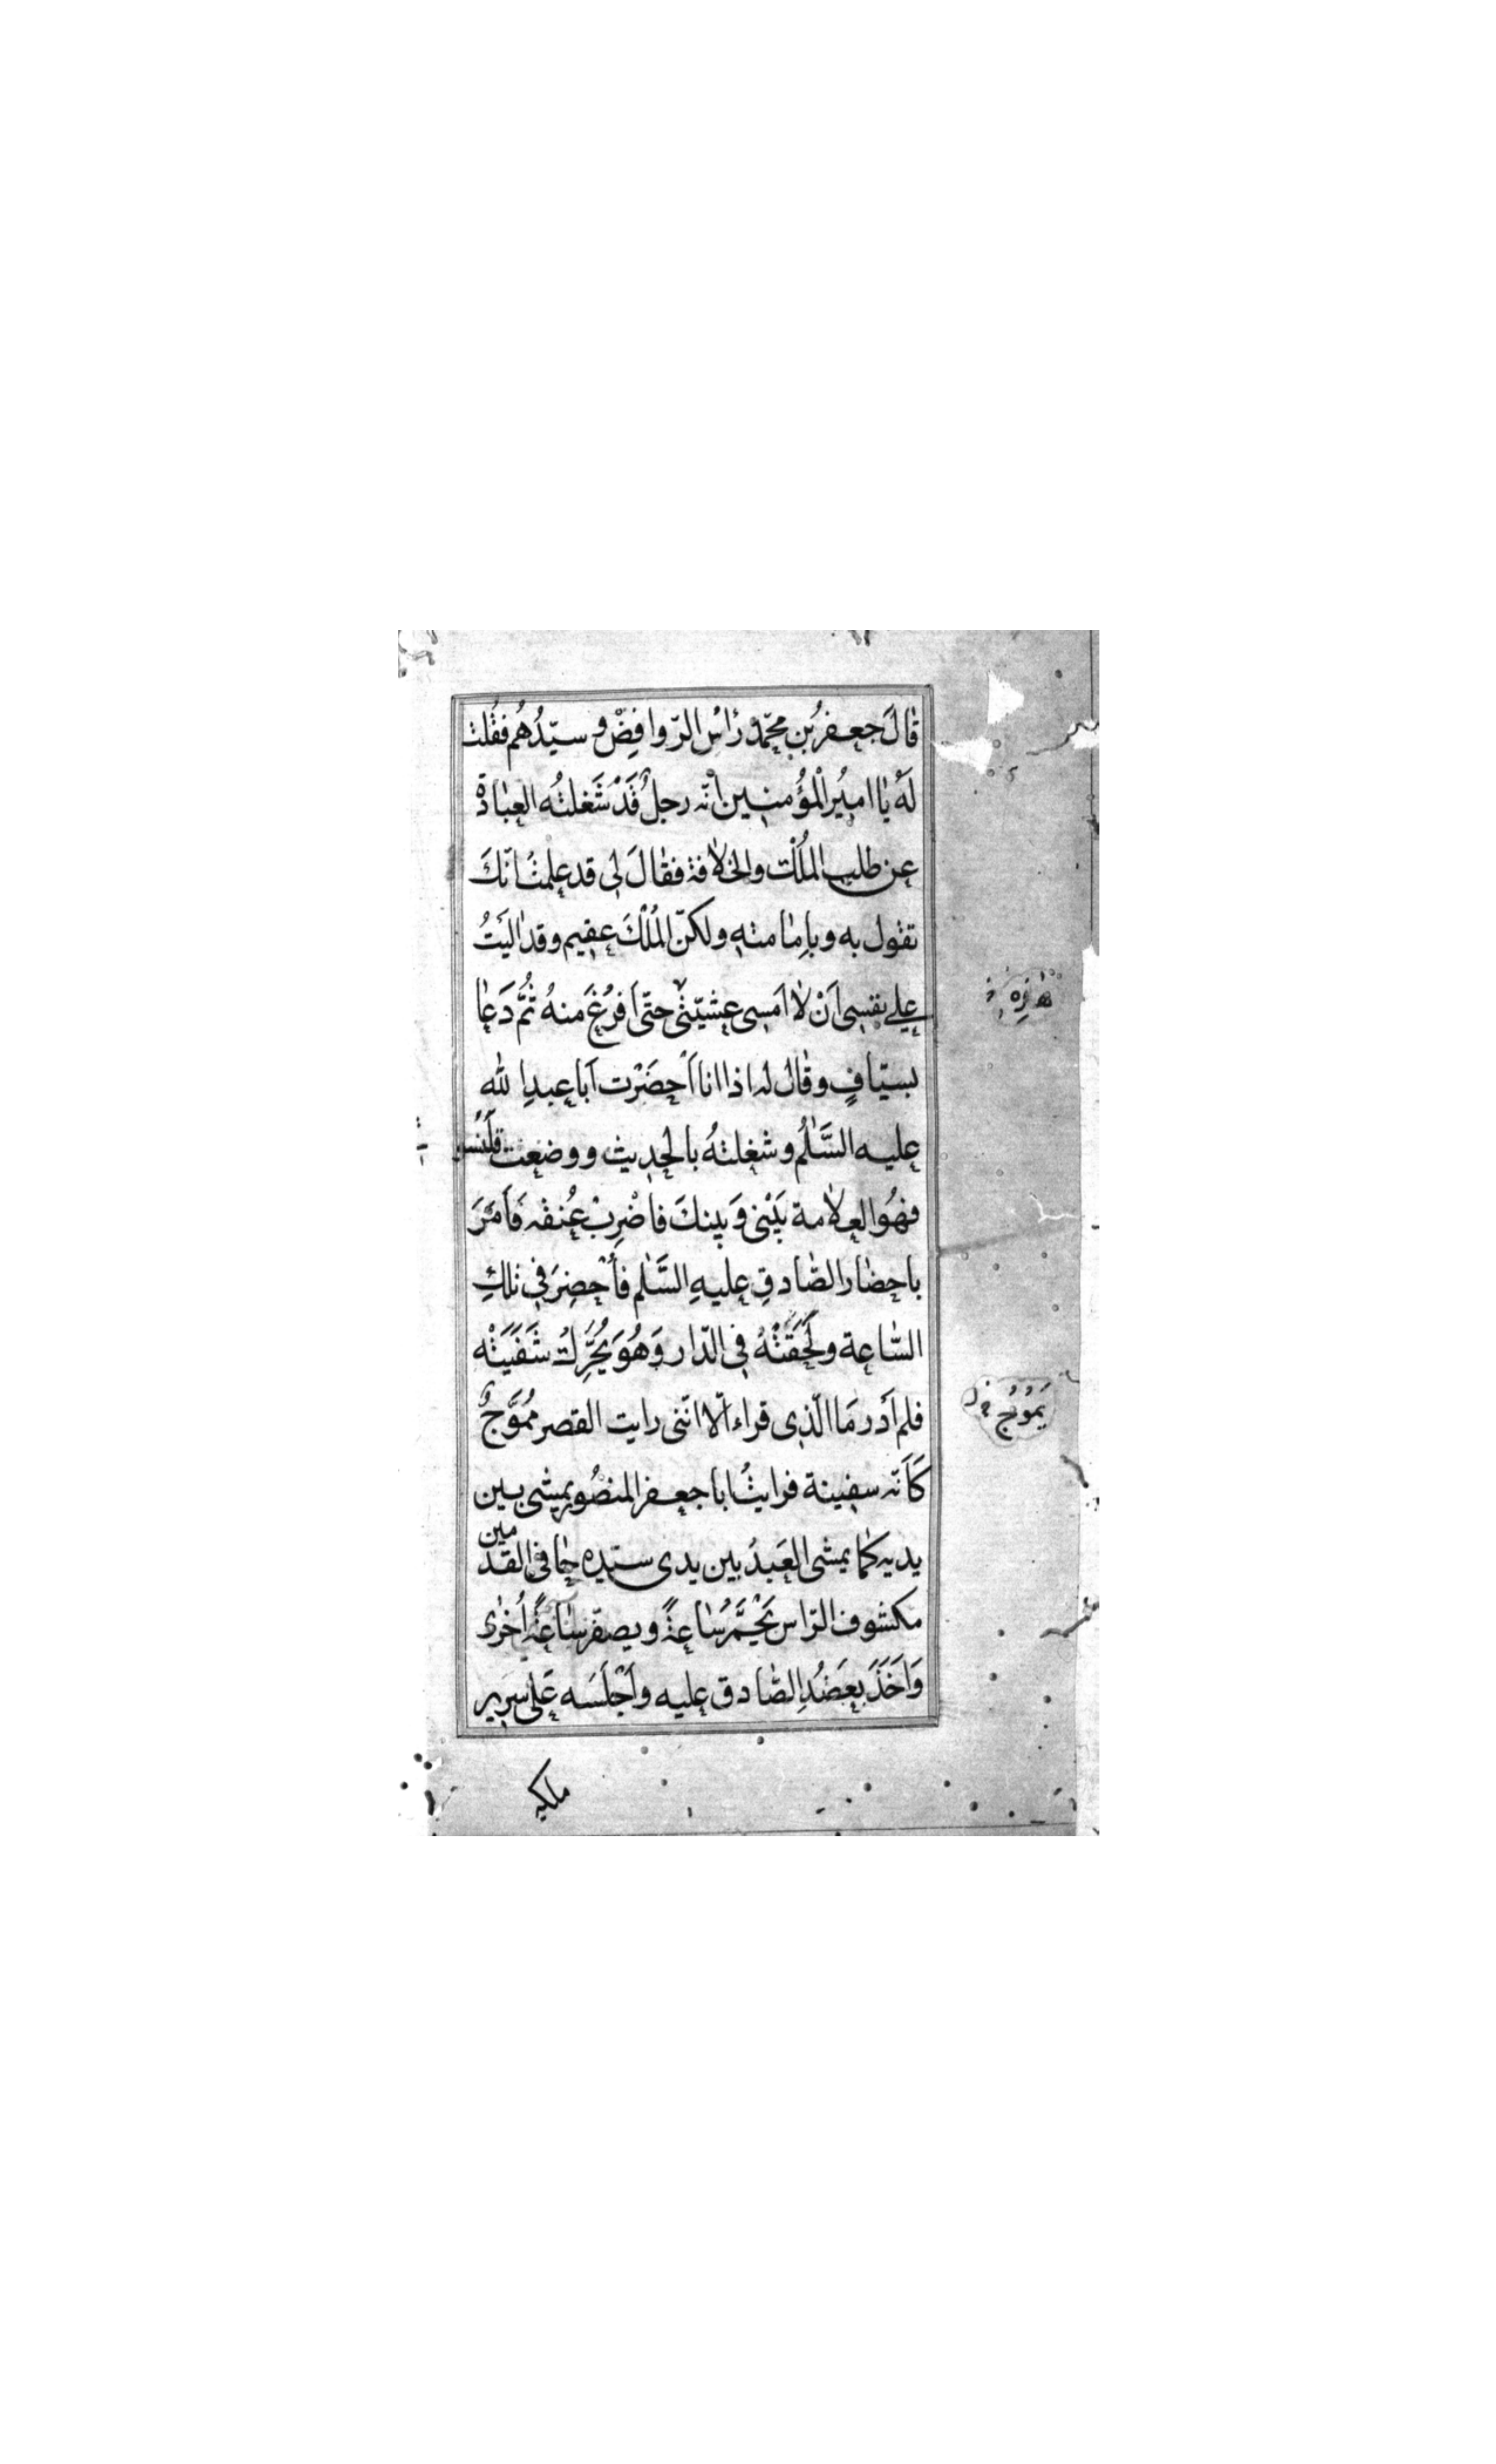 قَالَ جعفرُ بنِ محمّدٍ رَاسُ الرّوافِضْ وسيّدُهُم فقُلت
لَهُ يٰا اميُر الْمُؤمنين انّه رجلٌ قَدْ شَغَلتْهُ العبٰادَة
عن طلبِ المُلْك والخلافة فقٰالَ لى قد علمتُ انّكَ
تقول به وبامٰامته ولكنّ المُلْكَ عقيم وقد اٰليَتُ
على نفسى اَنْ لٰا امسى عشيّتى حتّى اَفرُغَ منهُ ثُمَّ دَعٰا
بسيّافٍ وقٰال له اذا انا اَحضَرْت اَبا عبدِ الله
عليه السَّلٰمُ وشغلتهُ بالحديث ووضعت قلَنْسو
فهُوَ العلامة بَيْنى وَبينكَ فاضْرِبْ عُنقه فَاَمَرَ
باحضٰار الصّٰادقِ عليهِ السَّلٰم فأُحضِرَ فى تلكِ
السّٰاعة ولَحِقَتْهُ فى الدّار وَهُوَ يُحَرِّكُ شَفَتَيْه
فلم اَدر مَا الّذى قراء الّا انّنى رايت القصر مُمَوَّجٌ
كَأنّه سفينة فرايتُ ابا جعفر المنصُور يمشى بين
يديه كمٰا يمشى العَبدُ بين يدى سيّده حٰافى القدمين
مكشوف الرّاس يَحْمَرُّ سٰاعةً ويصفرّ سٰاعةً اُخرٰى
وَاَخَذَ بعَضُدِ الصّٰادق عليه واَجْلَسَه عَلى سرير
هذه
يَمُوُجُ خ ل
ملكه